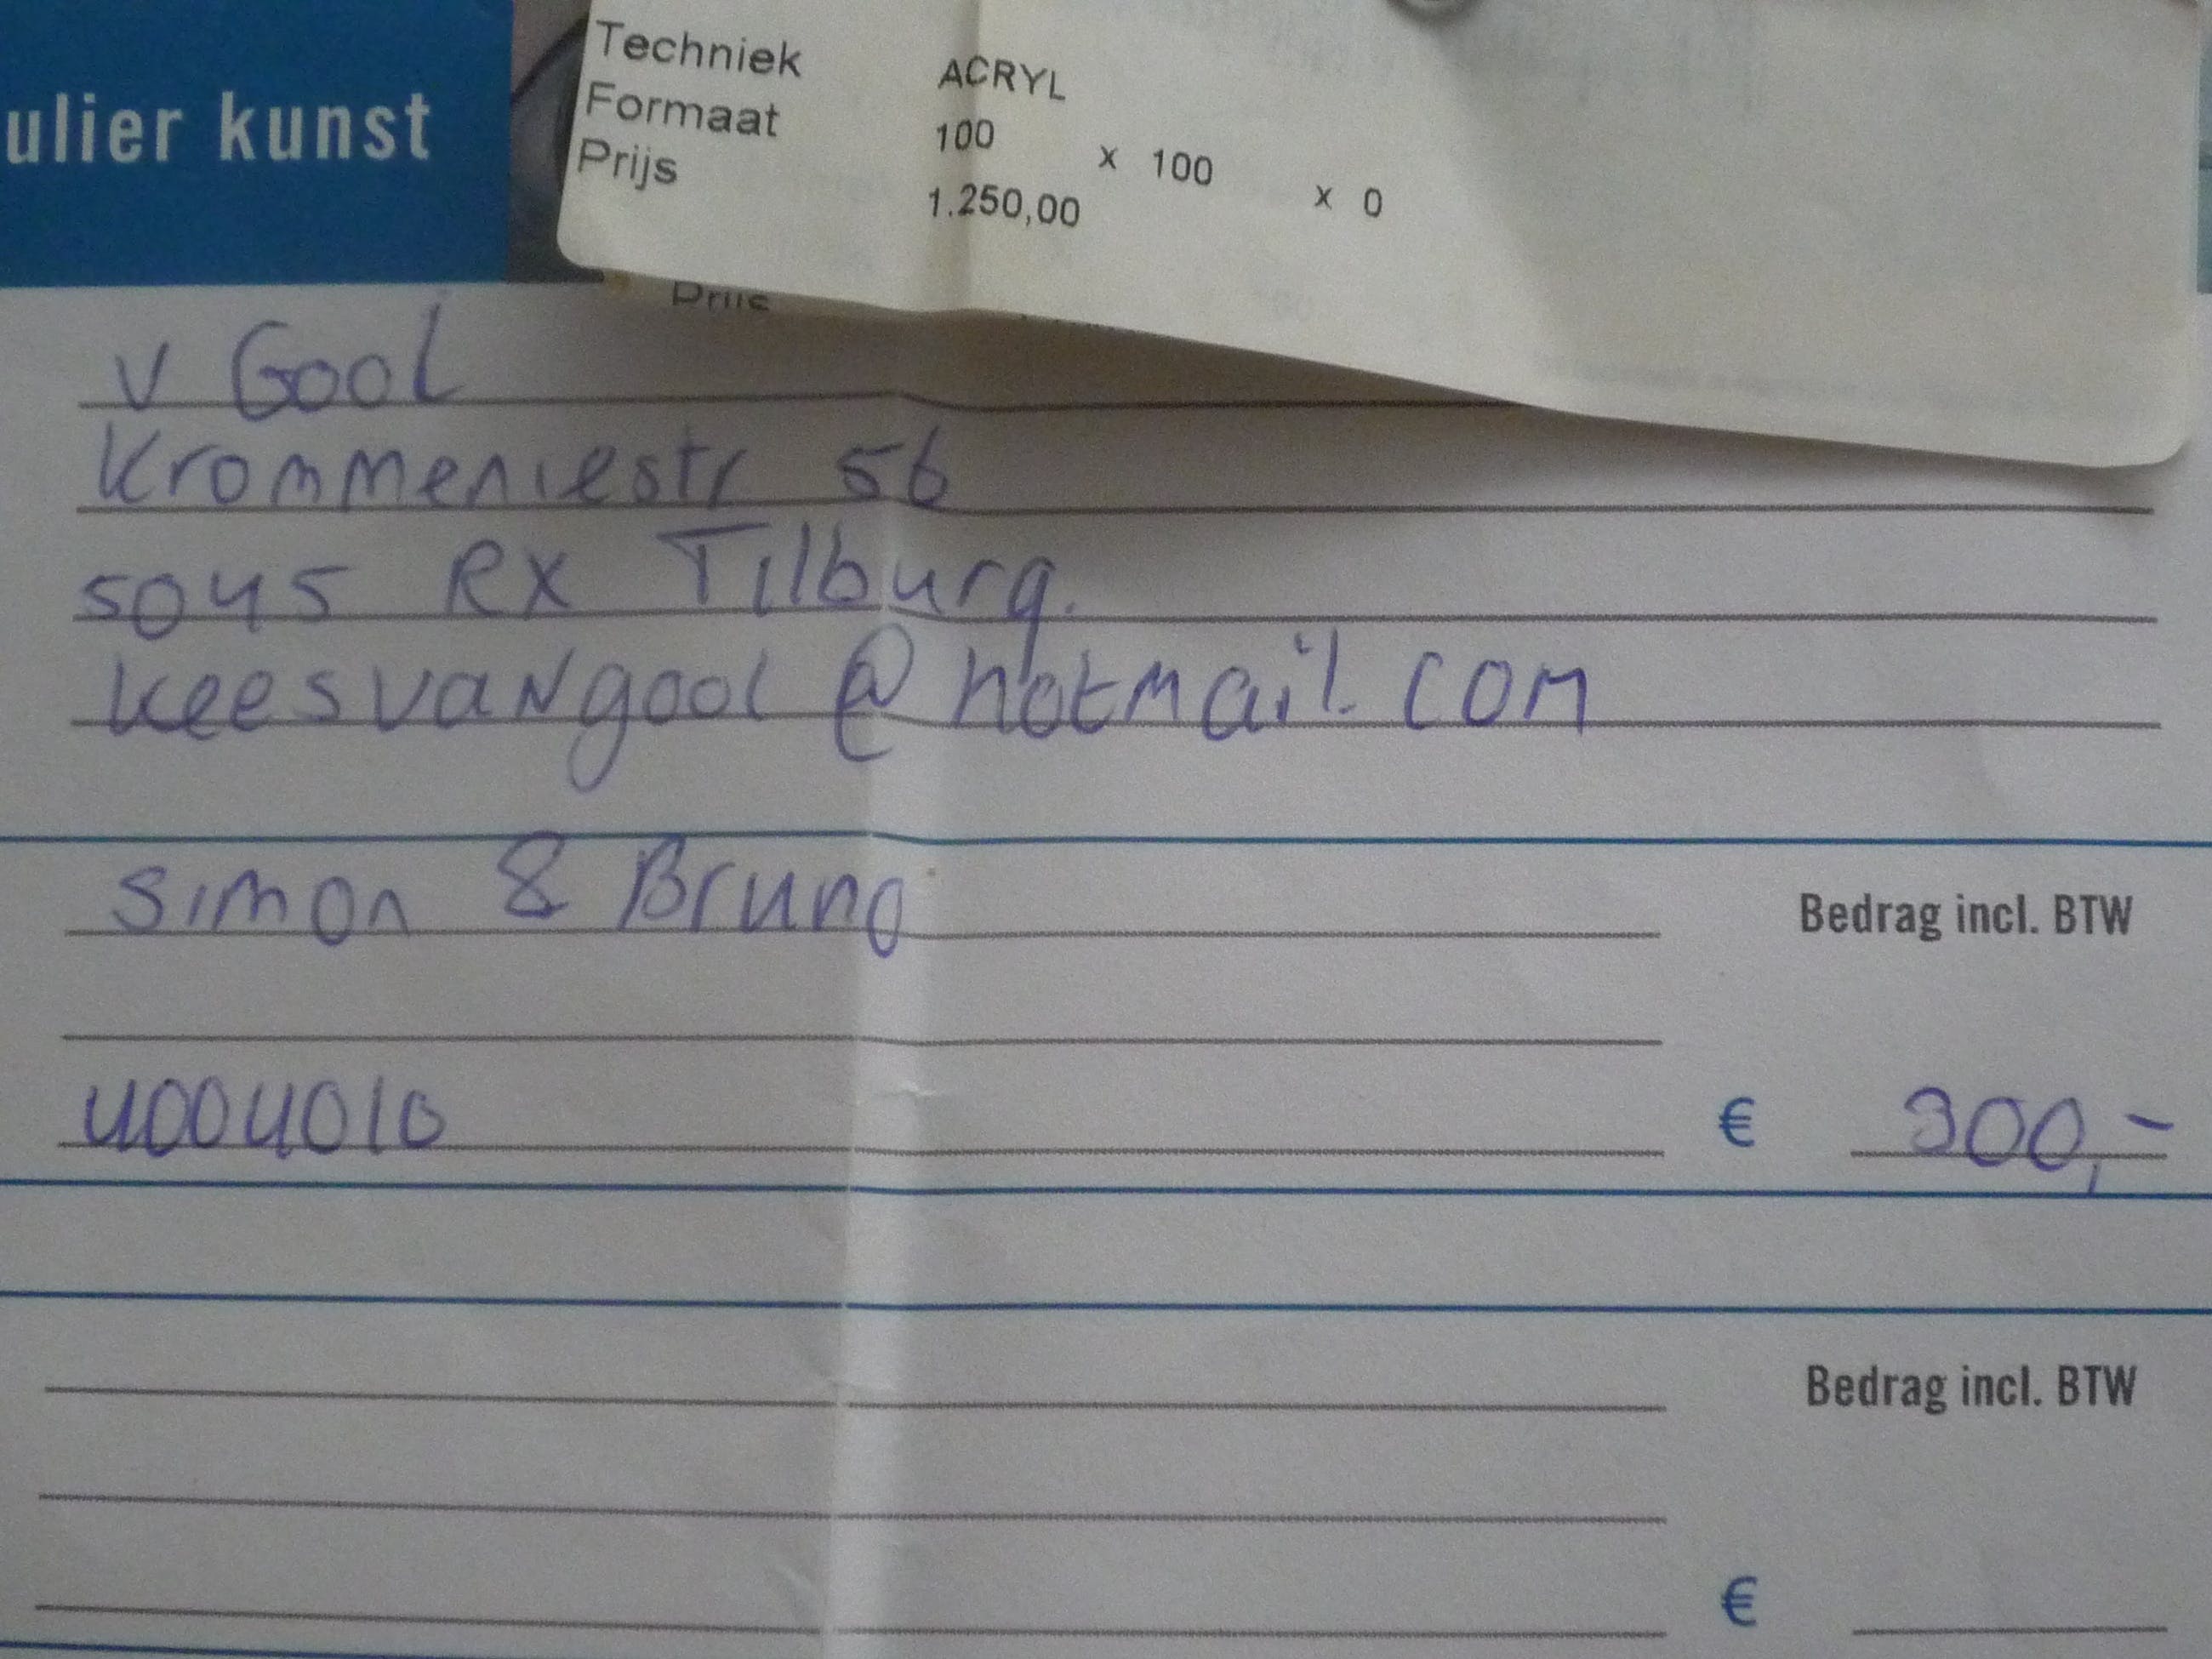 ulier kunst
Techniek ACRYL
Formaat 100 x 100 x 0
Prijs 1.250,00
Prijs
v Gool
Krommeniestr 56
5045 RX Tilburg.
keesvangool@hotmail.com
Simon & Bruno
Bedrag incl. BTW
4004010
€ 300,-
Bedrag incl. BTW
€